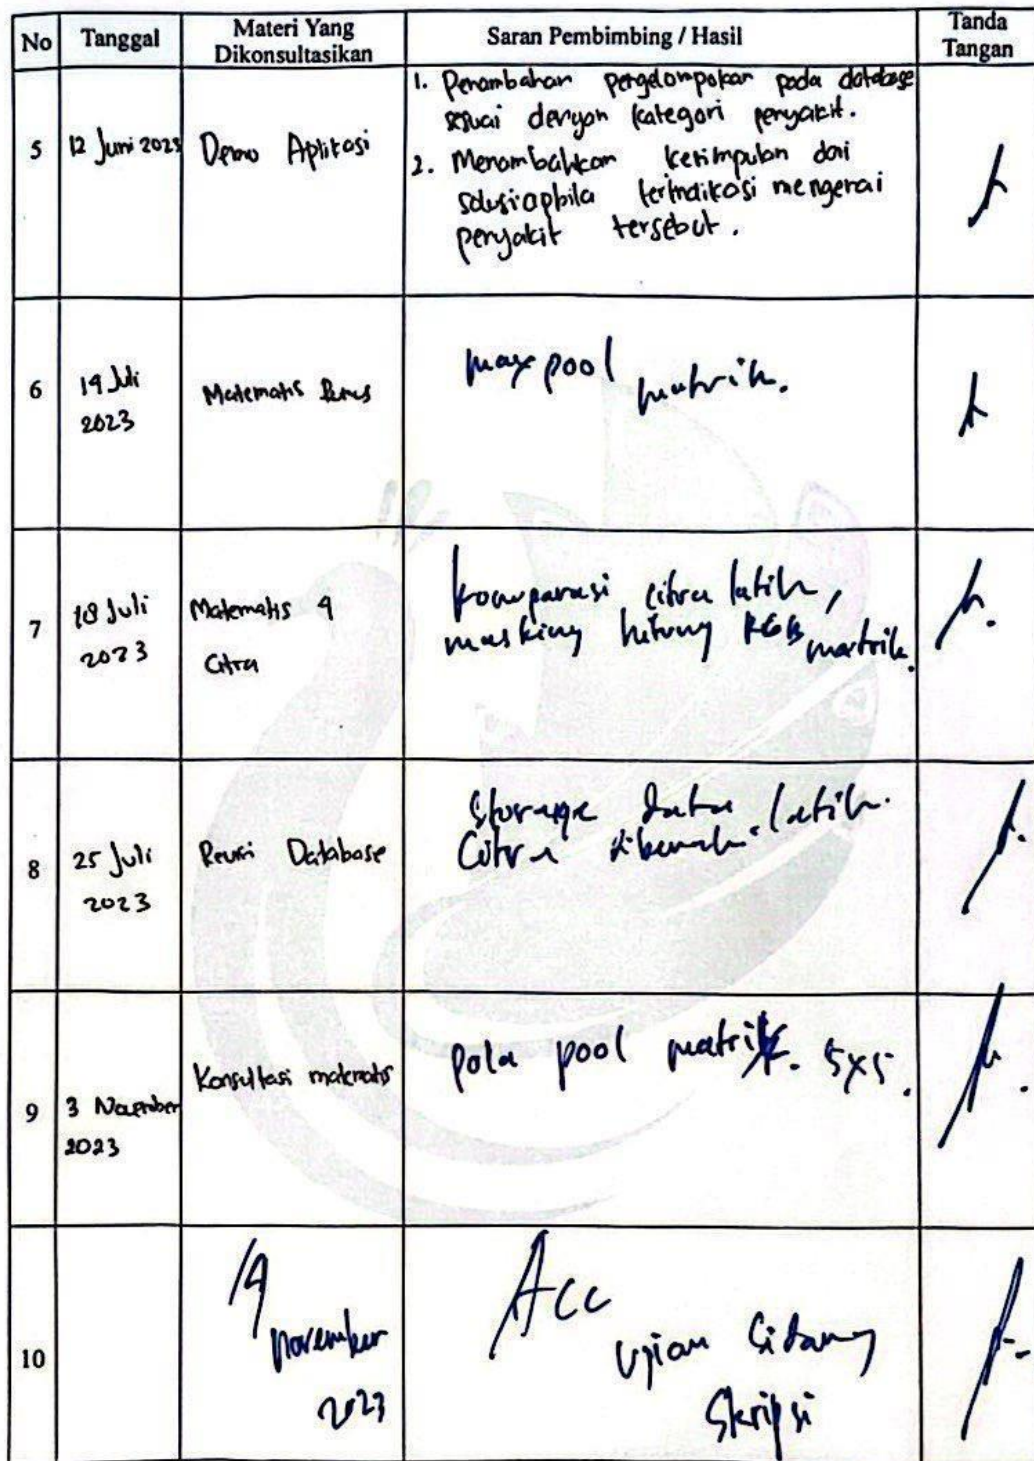 No Tanggal Materi Yang Dikonsultasikan Saran Pembimbing / Hasil Tanda Tangan
5 12 Juni 2023 Demo Aplikasi
1. Penambahan pengelompokan pada database
sesuai dengan kategori penyakit.
2. Menambahkan kesimpulan dari
solusi apbila terindikasi mengenai
penyakit tersebut.
6 19 Juli
2023
Matematis
max pool matrik.
7 18 Juli
2023
Matematis 4
Citra
komparasi citra latih,
masking hitung RGB matrik.
8 25 Juli
2023
Revisi Database
Storage data latih.
Citra latih
9 3 November
2023
Konsultasi matematis
pola pool matrik. 5x5.
10
14
November
2023
Acc
Ujian Sidang
Skripsi